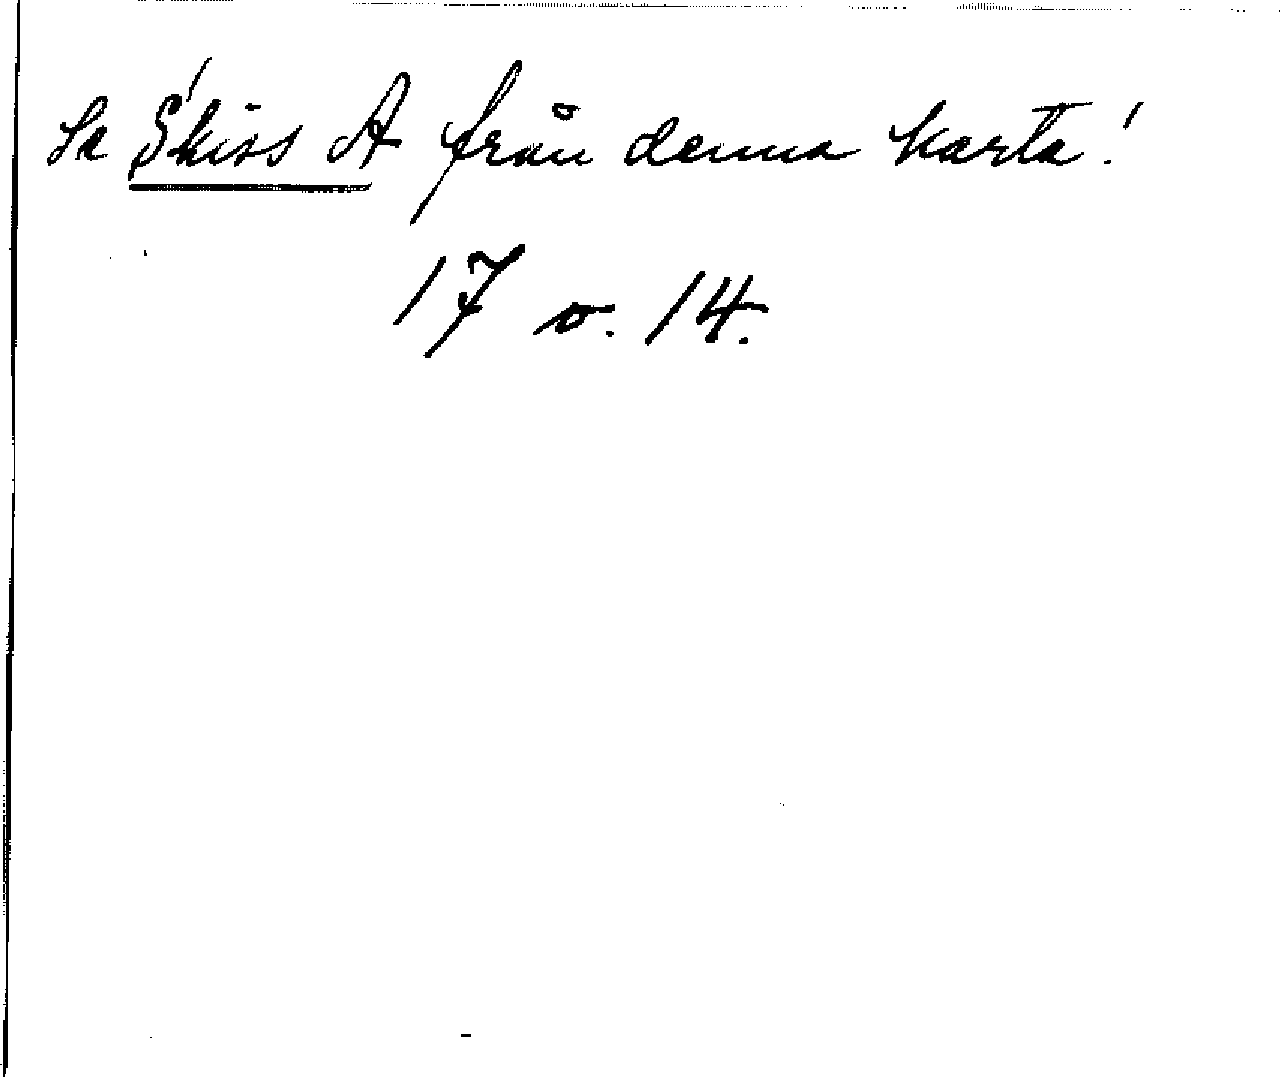 Se Skiss A från denna karta!
17 v. 14.